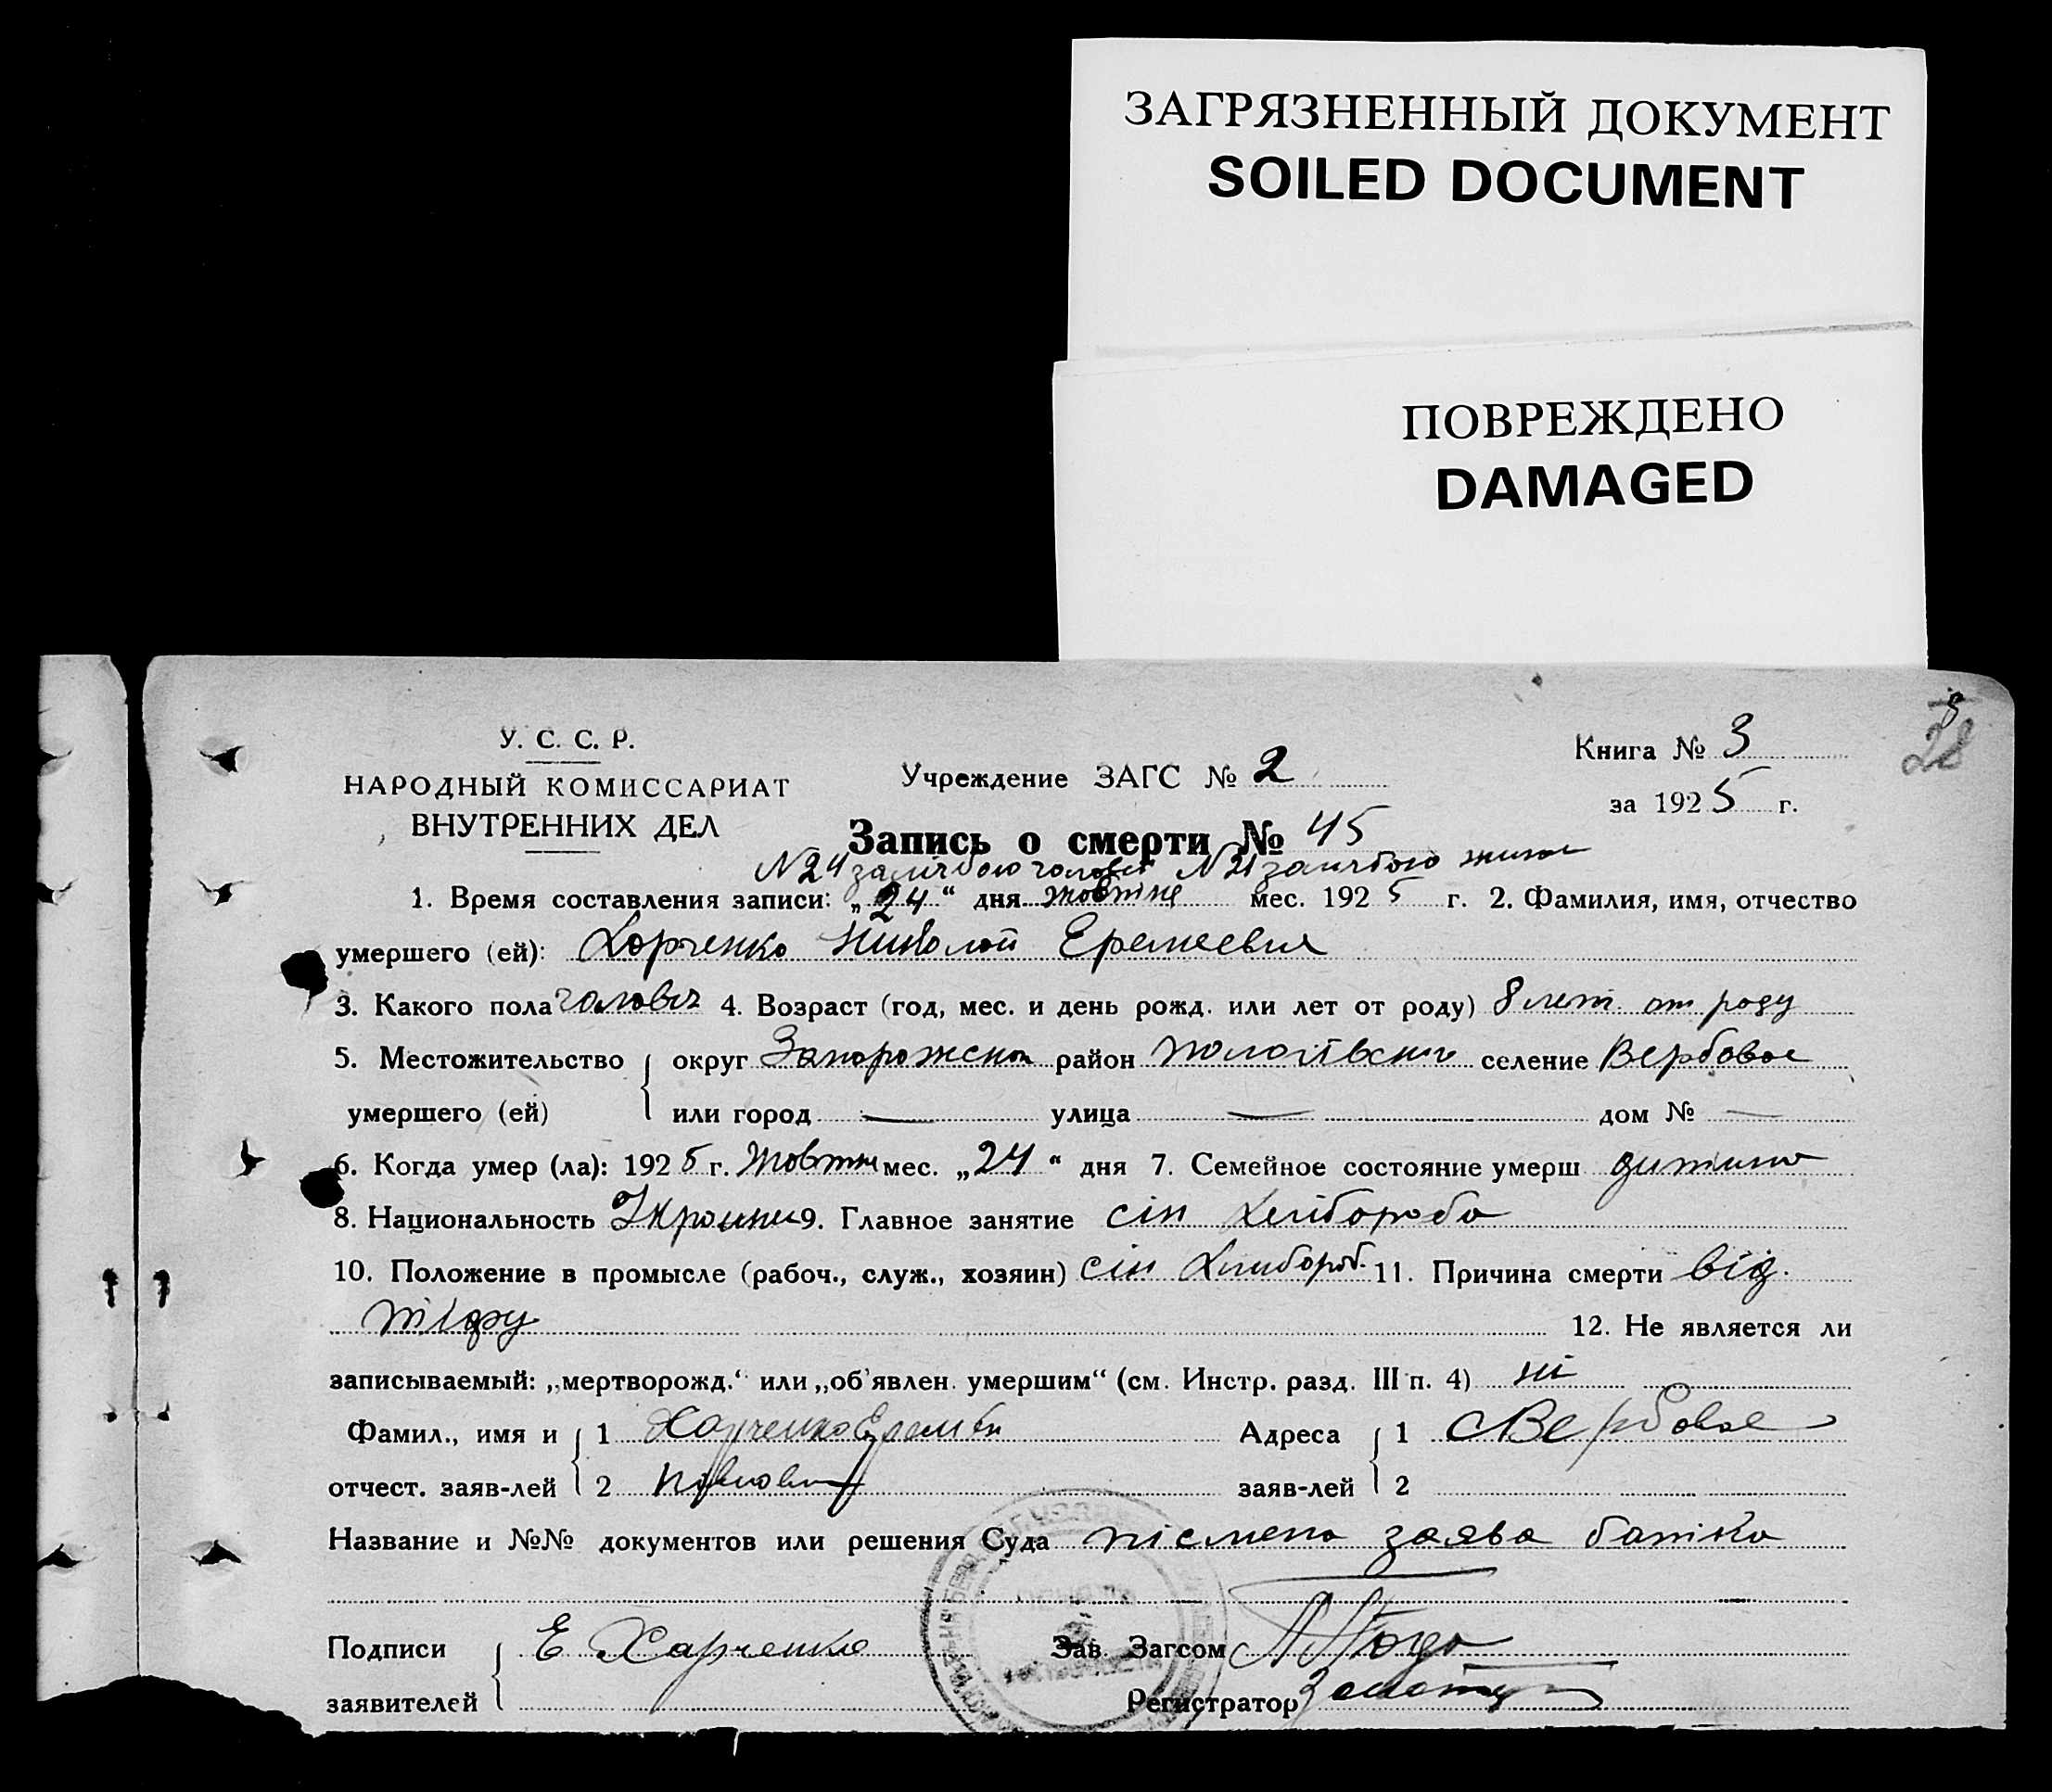 ЗАГРЯЗНЕННЫЙ ДОКУМЕНТ
SOILED DOCUMENT
ПОВРЕЖДЕНО
DAMAGED
28
У. С. С. Р.
НАРОДНЫЙ КОМИССАРИАТ
ВНУТРЕННИХ ДЕЛ
Учреждение ЗАГС № 2
Книга № 3
за 1925 г.
Запись о смерти № 45
N24 N21
1. Время составления записи: „24“ дня жовтня мес. 1925 г. 2. Фамилия, имя, отчество
умершего (ей): Харченко Николай Еремеевич
3. Какого пола 4. Возраст (год, мес. и день рожд. или лет от роду) 8 лет от роду
5. Местожительство округ Запорожский район селение Вербовое
умершего (ей) или город — улица — дом № —
6. Когда умер (ла): 1925 г. Жовтня мес. „24“ дня 7. Семейное состояние умерш дитина
8. Национальность 9. Главное занятие сін Хлібороба
10. Положение в промысле (рабоч., служ., хозяин) сін Хлибороб. 11. Причина смерти від
тіфу 12. Не является ли
записываемый: „мертворожд.“ или „об'явлен. умершим“ (см. Инстр. разд. III п. 4) ні
Фамил., имя и 1 Харченко Еремей Адреса 1 с Вербовое
отчест. заяв-лей 2 заяв-лей 2
Название и №№ документов или решения Суда пісмена заява батька
Подписи Е Харченко Зав. Загсом
заявителей Регистратор